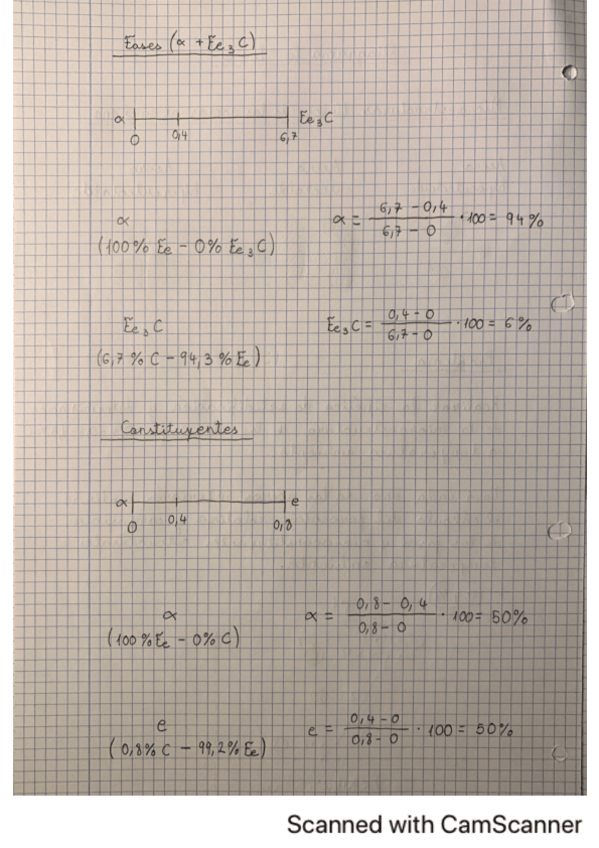 Fases (α + Fe₃C)
α Fe₃C
0 0,4 6,7
α
(100% Fe - 0% Fe₃C)
α = (6,7 - 0,4)/(6,7 - 0) · 100 = 94%
Fe₃C
(6,7 % C - 94,3 % Fe)
Fe₃C = (0,4 - 0)/(6,7 - 0) · 100 = 6 %
Constituyentes
α e
0 0,4 0,8
α
(100 % Fe - 0% C)
α = (0,8 - 0,4)/(0,8 - 0) · 100 = 50%
e
(0,8% C - 99,2% Fe)
e = (0,4 - 0)/(0,8 - 0) · 100 = 50%
Scanned with CamScanner